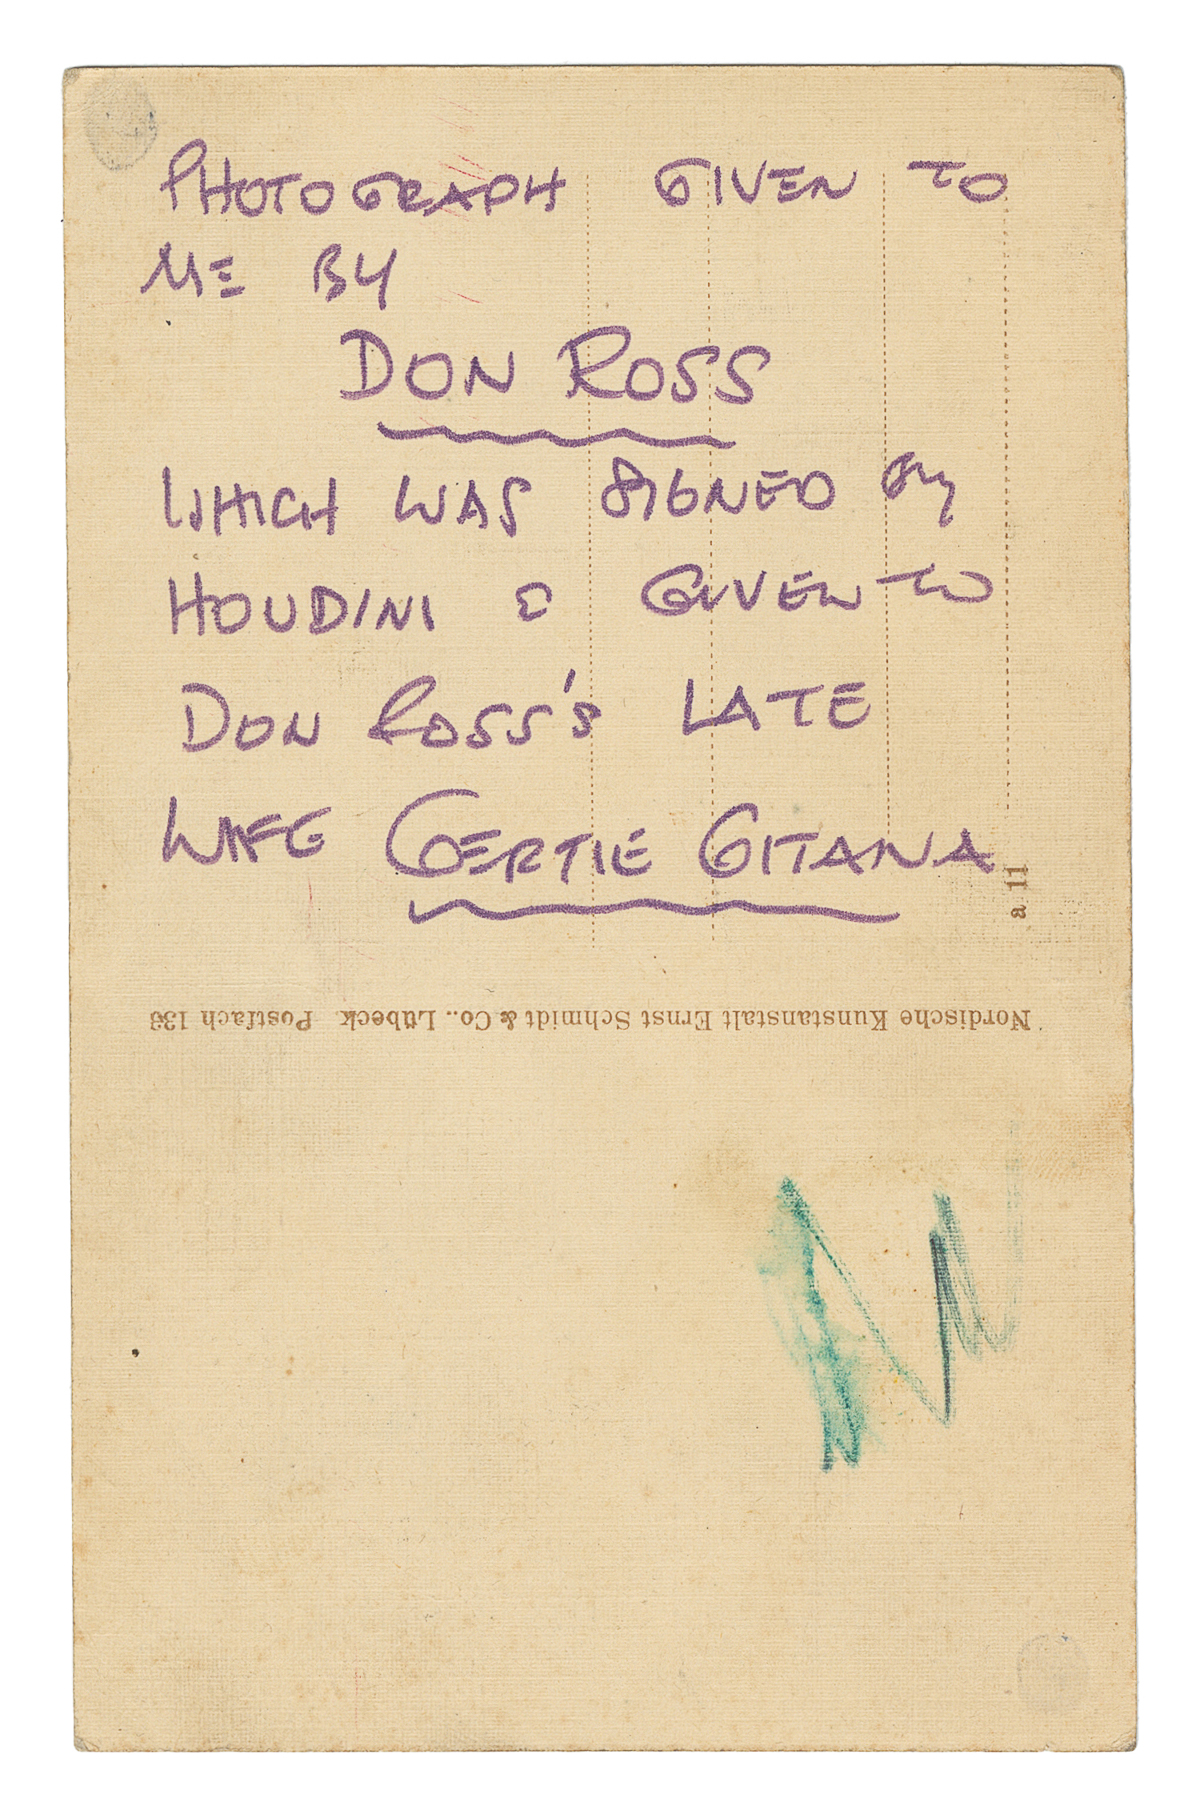 PHOTOGRAPH GIVEN TO
ME BY
DON ROSS
WHICH WAS SIGNED By
HOUDINI & GIVEN TO
DON ROSS'S LATE
WIFE GERTIE GITANA
a 11
Nordische Kunstanstalt Ernst Schmidt & Co., Lübeck. Postfach 133